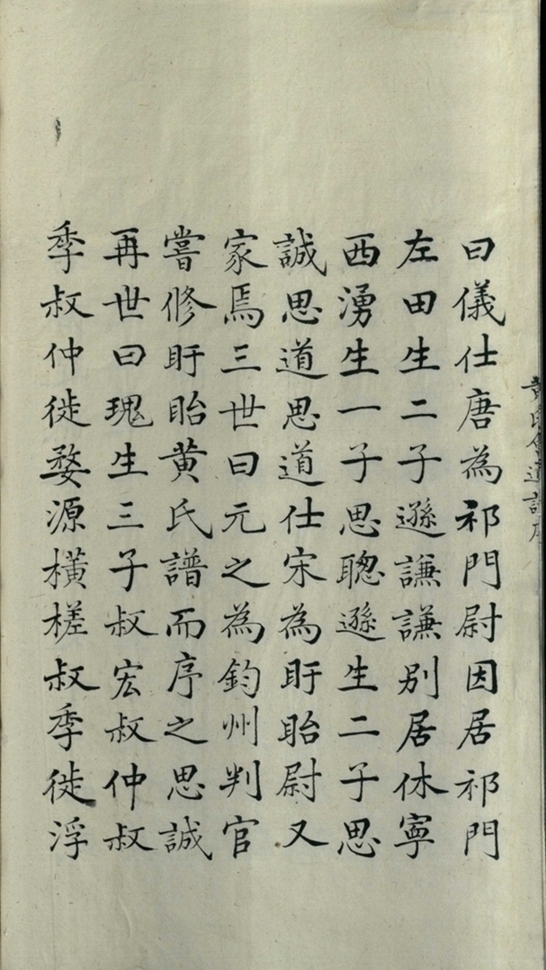 曰儀仕唐為祁門尉因居祁門
左田生二子遜謙謙别居休寧
西湧生一子思聰遜生二子思
誠思道思道仕宋為盱眙尉又
家焉三世曰元之為鈞州判官
嘗修盱眙黄氏譜而序之思誠
再世曰瑰生三子叔宏叔仲叔
季叔仲徙婺源橫槎叔季徙浮